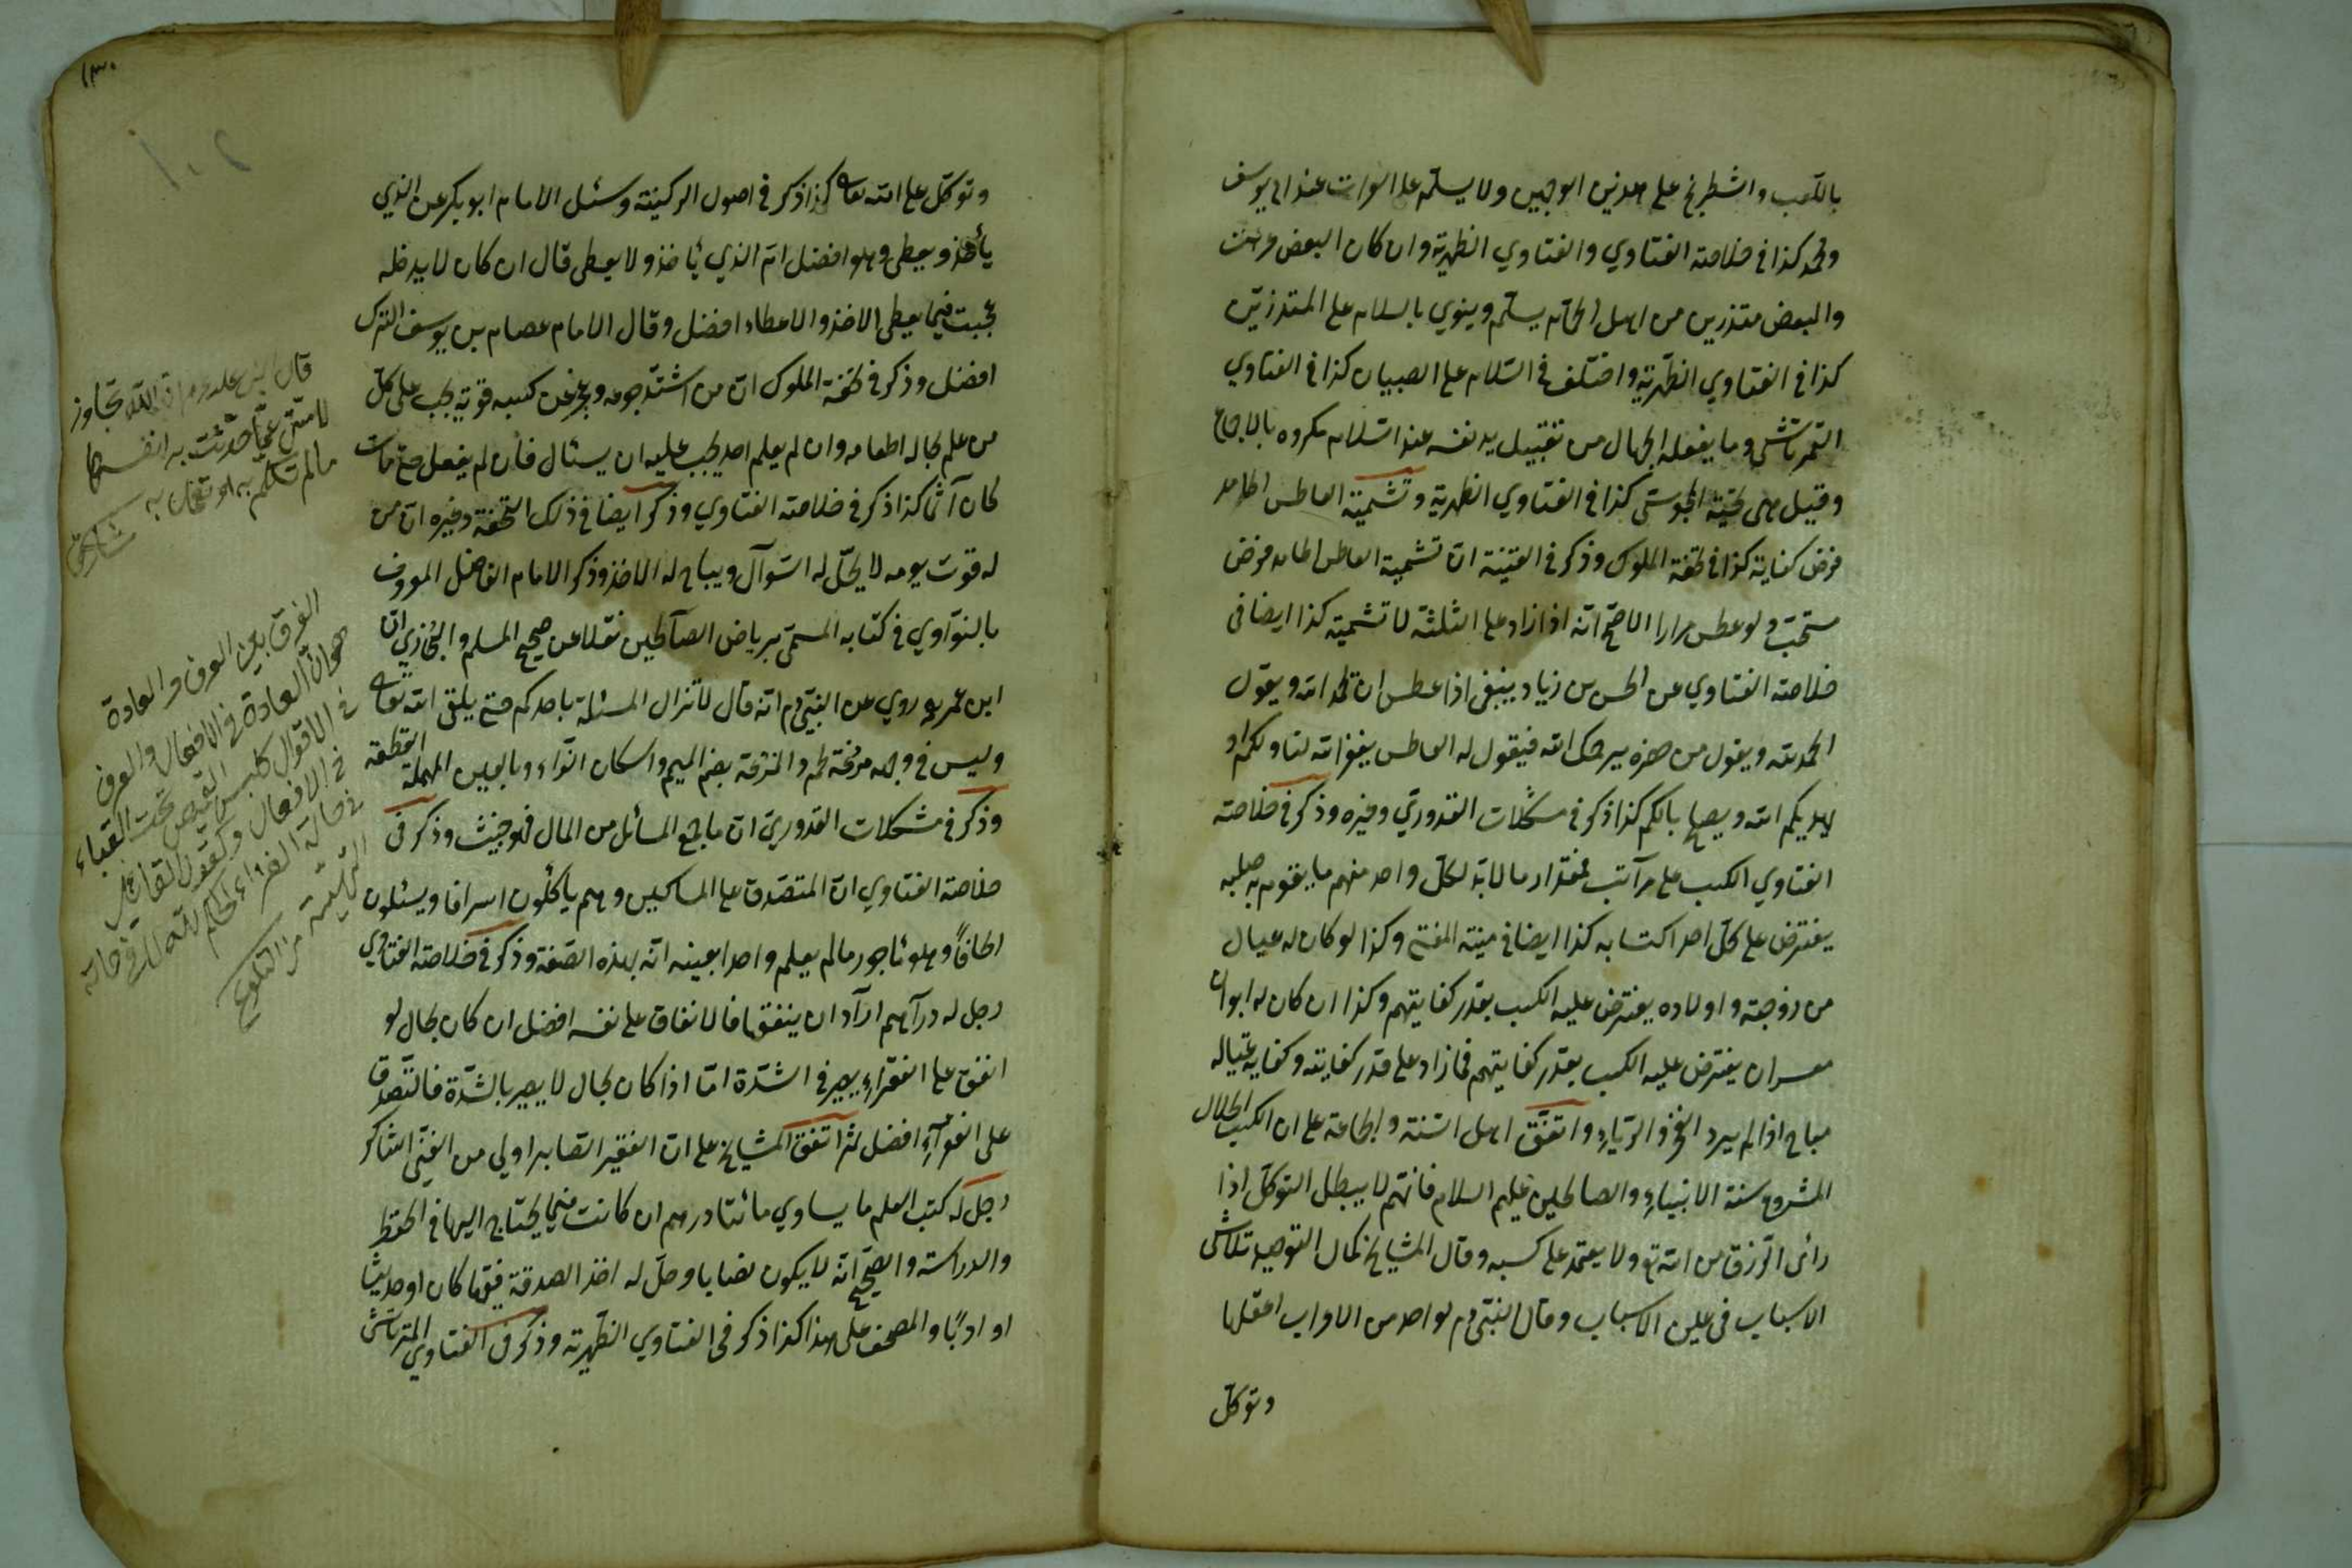 بالكعب والشطرنج على هذين الوجهين ولا يسلم على العراة عند ابي يوسف
ومحمد كذا في خلاصة الفتاوي والفتاوي الظهرية وان كان البعض عراة
والبعض متزرين من اهل الحمام يسلم وينوي بالسلام على المتزرين
كذا في الفتاوي الظهرية واختلف في السلام على الصبيان كذا في الفتاوي
التمرتاشي وما يفعله الجهال من تقبيل يد نفسه عند السلام مكروه بالاجماع
وقيل هي تحية المجوسي كذا في الفتاوي الظهرية وتشميت العاطس الحامد
فرض كفاية كذا في تحفة الملوك وذكر في القنية ان تشميت العاطس الحامد فرض
مستحب ولو عطس مرارا الاصح انه اذا زاد على الثلثة لا تشميته كذا ايضا في
خلاصة الفتاوي عن الحسن بن زياد ينبغي اذا عطس ان يحمد الله ويقول
الحمد لله ويقول من حضره يرحمك الله فيقول له العاطس يغفر الله لنا ولكم او
يهديكم الله ويصلح بالكم كذا ذكر في مشكلات القدوري وغيره وذكر في خلاصة
الفتاوي الكسب على مراتب بمقدار ما لابد لكل واحد منهم ما يقوم به صلبه
يفترض على كل احد اكتسابه كذا ايضا في منية المفتي وكذا لو كان له عيال
من زوجته واولاده يفترض عليه الكسب بقدر كفايتهم وكذا ان كان له ابوان
معسران يفترض عليه الكسب بقدر كفايتهم فما زاد على قدر كفايته وكفاية عياله
مباح اذا لم يرد الفخر والرياء واتفق اهل السنة والجماعة على ان الكسب الحلال
المشروع سنة الانبياء والصالحين عليهم السلام فانهم لا يبطل التوكل اذا
رأى الرزق من الله تع ولا يعتمد على كسبه وقال المشايخ كمال التوحيد تلاشى
الاسباب في عين الاسباب وقال النبي عم لواحد من الاعراب اعقلها
وتوكل
١٣٠
١٠٢
وتوكل على الله تعا كذا ذكر في اصول الركنية وسئل الامام ابو بكر عن الذي
يأخذ ويعطي وهو افضل ام الذي يأخذ ولا يعطي قال ان كان لا يدخله
عجبت فيما يعطي الاخذ والاعطاء افضل وقال الامام عصام بن يوسف الترك
افضل وذكر في تحفة الملوك ان من اشتد جوعه وعجز عن كسبه قوته يجب على كل
من علم بحاله اطعامه وان لم يعلم احد يجب عليه ان يسئال فأن لم يفعل حتى مات
كان آثما كذا ذكر في خلاصة الفتاوي وذكر ايضا في ذلك التحفة وغيره ان من
له قوت يومه لا يحل له السوآل ويباح له الاخذ وذكر الامام الفاضل المعروف
بالنوآوي في كتابه المسمى برياض الصآلحين نقلا عن صحيح المسلم والبخاري ان
ابن عمر روي عن النبي عم انه قال لا تزال المسئلة باحدكم حتى يلقى الله تعا
وليس في وجهه مزعة لحم والمزعة بضم الميم واسكان الزاء وبالعين المهملة القطعة
وذكر في مشكلات القدوري ان ما جمع السائل من المال فهو خبيث وذكر في
خلاصة الفتاوي ان المتصدق على المساكين وهم يأكلون اسرافا ويسئلون
الحافاً وهو مأجور ما لم يعلم واحدا بعينه انه بهذه الصفة وذكر في خلاصة الفتاوي
رجل له درآهم ارآد ان ينفقها فالانفاق على نفسه افضل ان كان بحال لو
انفق على الفقرآء يصير في الشدة اما اذا كان بحال لا يصير بالشدة فالتصدق
على الفقرآء افضل ثم اتفق المشايخ على ان الفقير الصابر اولى من الغني الشاكر
رجل له كتب العلم ما يساوي مائتا درهم ان كانت مما يحتاج اليها في الحفظ
والدراسة والصحيح انه لا يكون نصابا وحل له اخذ الصدقة فقها كان او حديثا
او ادبًا والمصحف على هذا كذا ذكر في الفتاوي الظهرية وذكر في الفتاوي التمرتاشي
قال النبي عليه ان الله تجاوز
لامتي عما حدثت به انفسها
ما لم تتكلم به او تعمل به
الفرق بين العرف والعادة
هو ان العادة في الافعال والعرف
في الاقوال كلبس القميص تحت القباء
في الافعال
من التلويح